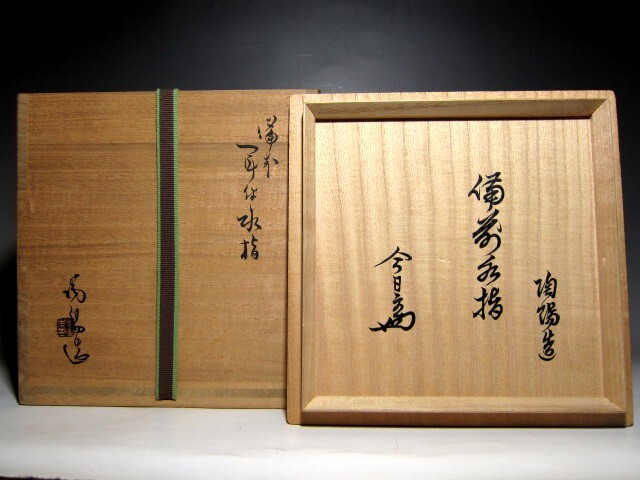 備前
耳付水指
陶陽造
陶陽造
備前水指
今日庵